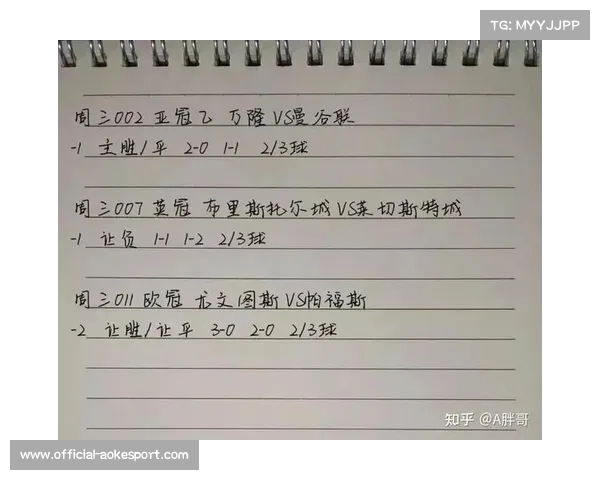 TG: MYYJJPP
周三002 亚冠乙 万隆VS曼谷联
-1 主胜/平 2-0 1-1 2/3球
周三007 英冠 布里斯托尔城VS莱切斯特城
-1 让负 1-1 1-2 2/3球
周三011 欧冠 尤文图斯VS帕福斯
-2 让胜/让平 3-0 2-0 2/3球
知乎 @A胖哥
www.official-aokesport.com